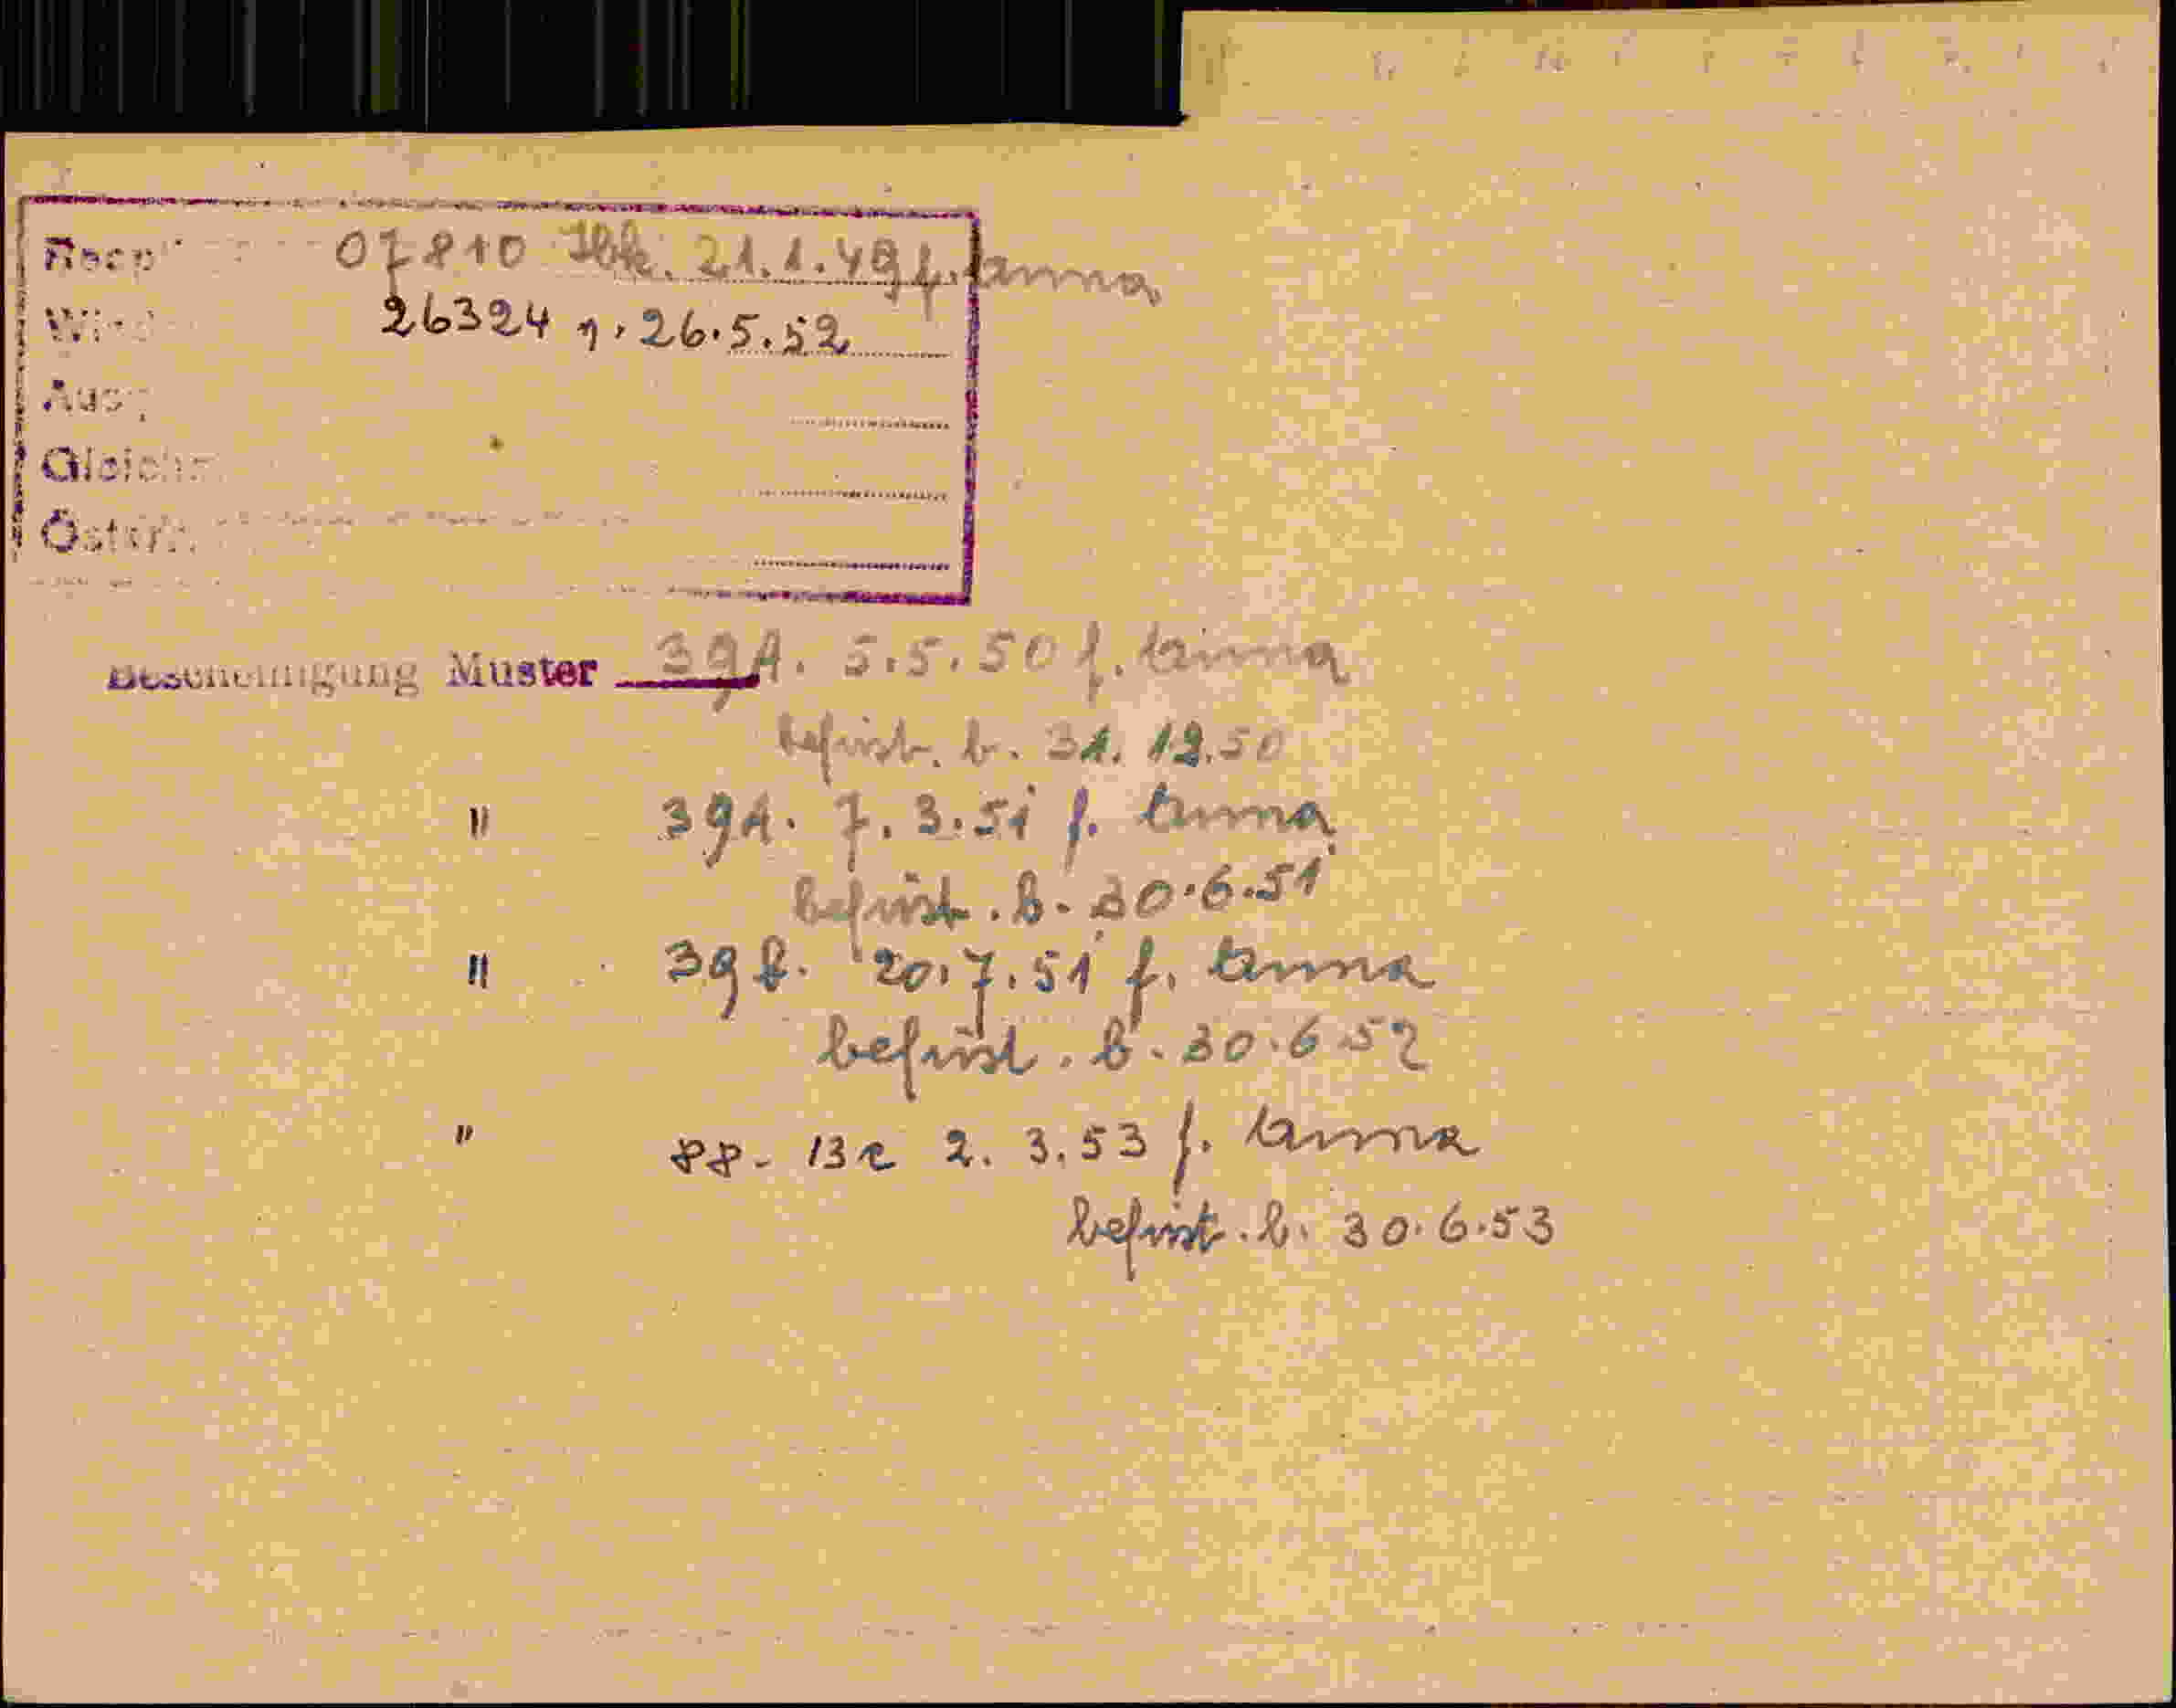 07810 Ibk. 21.1.49 f. Anna
26324 n. 26.5.52
Bescheinigung Muster 39A. 5.5.50 f. Anna
befrist. b. 31.12.50
" 39A. 7.3.51 f. Anna
befrist. b. 30.6.51
" 39 20.7.51 f. Anna
befrist. b. 30.6.52
" 88-13 2.3.53 f. Anna
befrist. b. 30.6.53